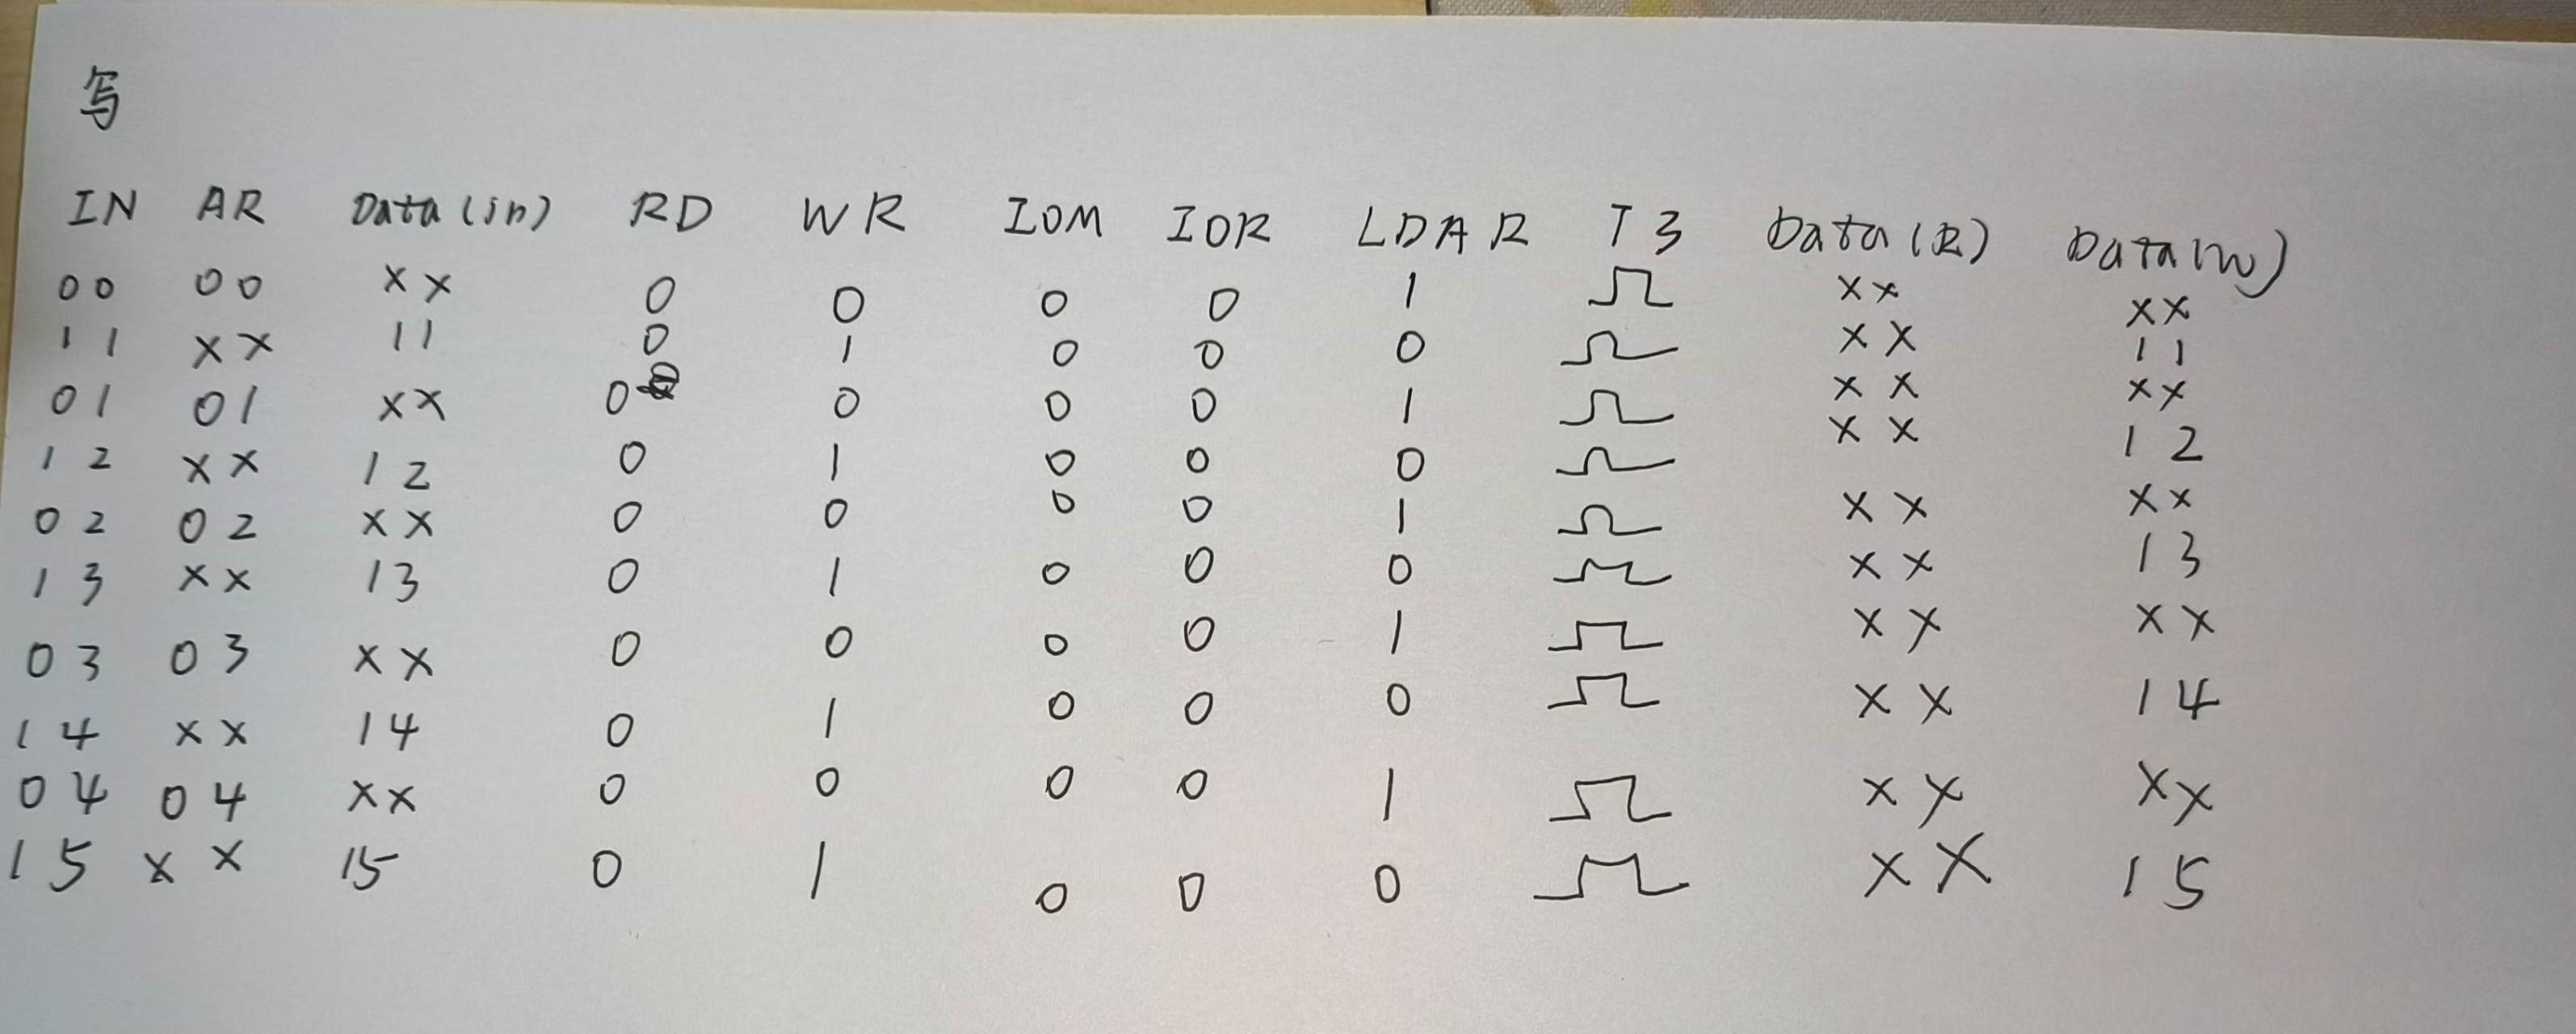 写
IN AR Data(in) RD WR IOM IOR LDAR T3 Data(R) Data(W)
00 00 XX 0 0 0 0 1 XX XX
11 XX 11 0 1 0 0 0 XX 11
01 01 XX 0 0 0 0 1 XX XX
12 XX 12 0 1 0 0 0 XX 12
02 02 XX 0 0 0 0 1 XX XX
13 XX 13 0 1 0 0 0 XX 13
03 03 XX 0 0 0 0 1 XX XX
14 XX 14 0 1 0 0 0 XX 14
04 04 XX 0 0 0 0 1 XX XX
15 XX 15 0 1 0 0 0 XX 15